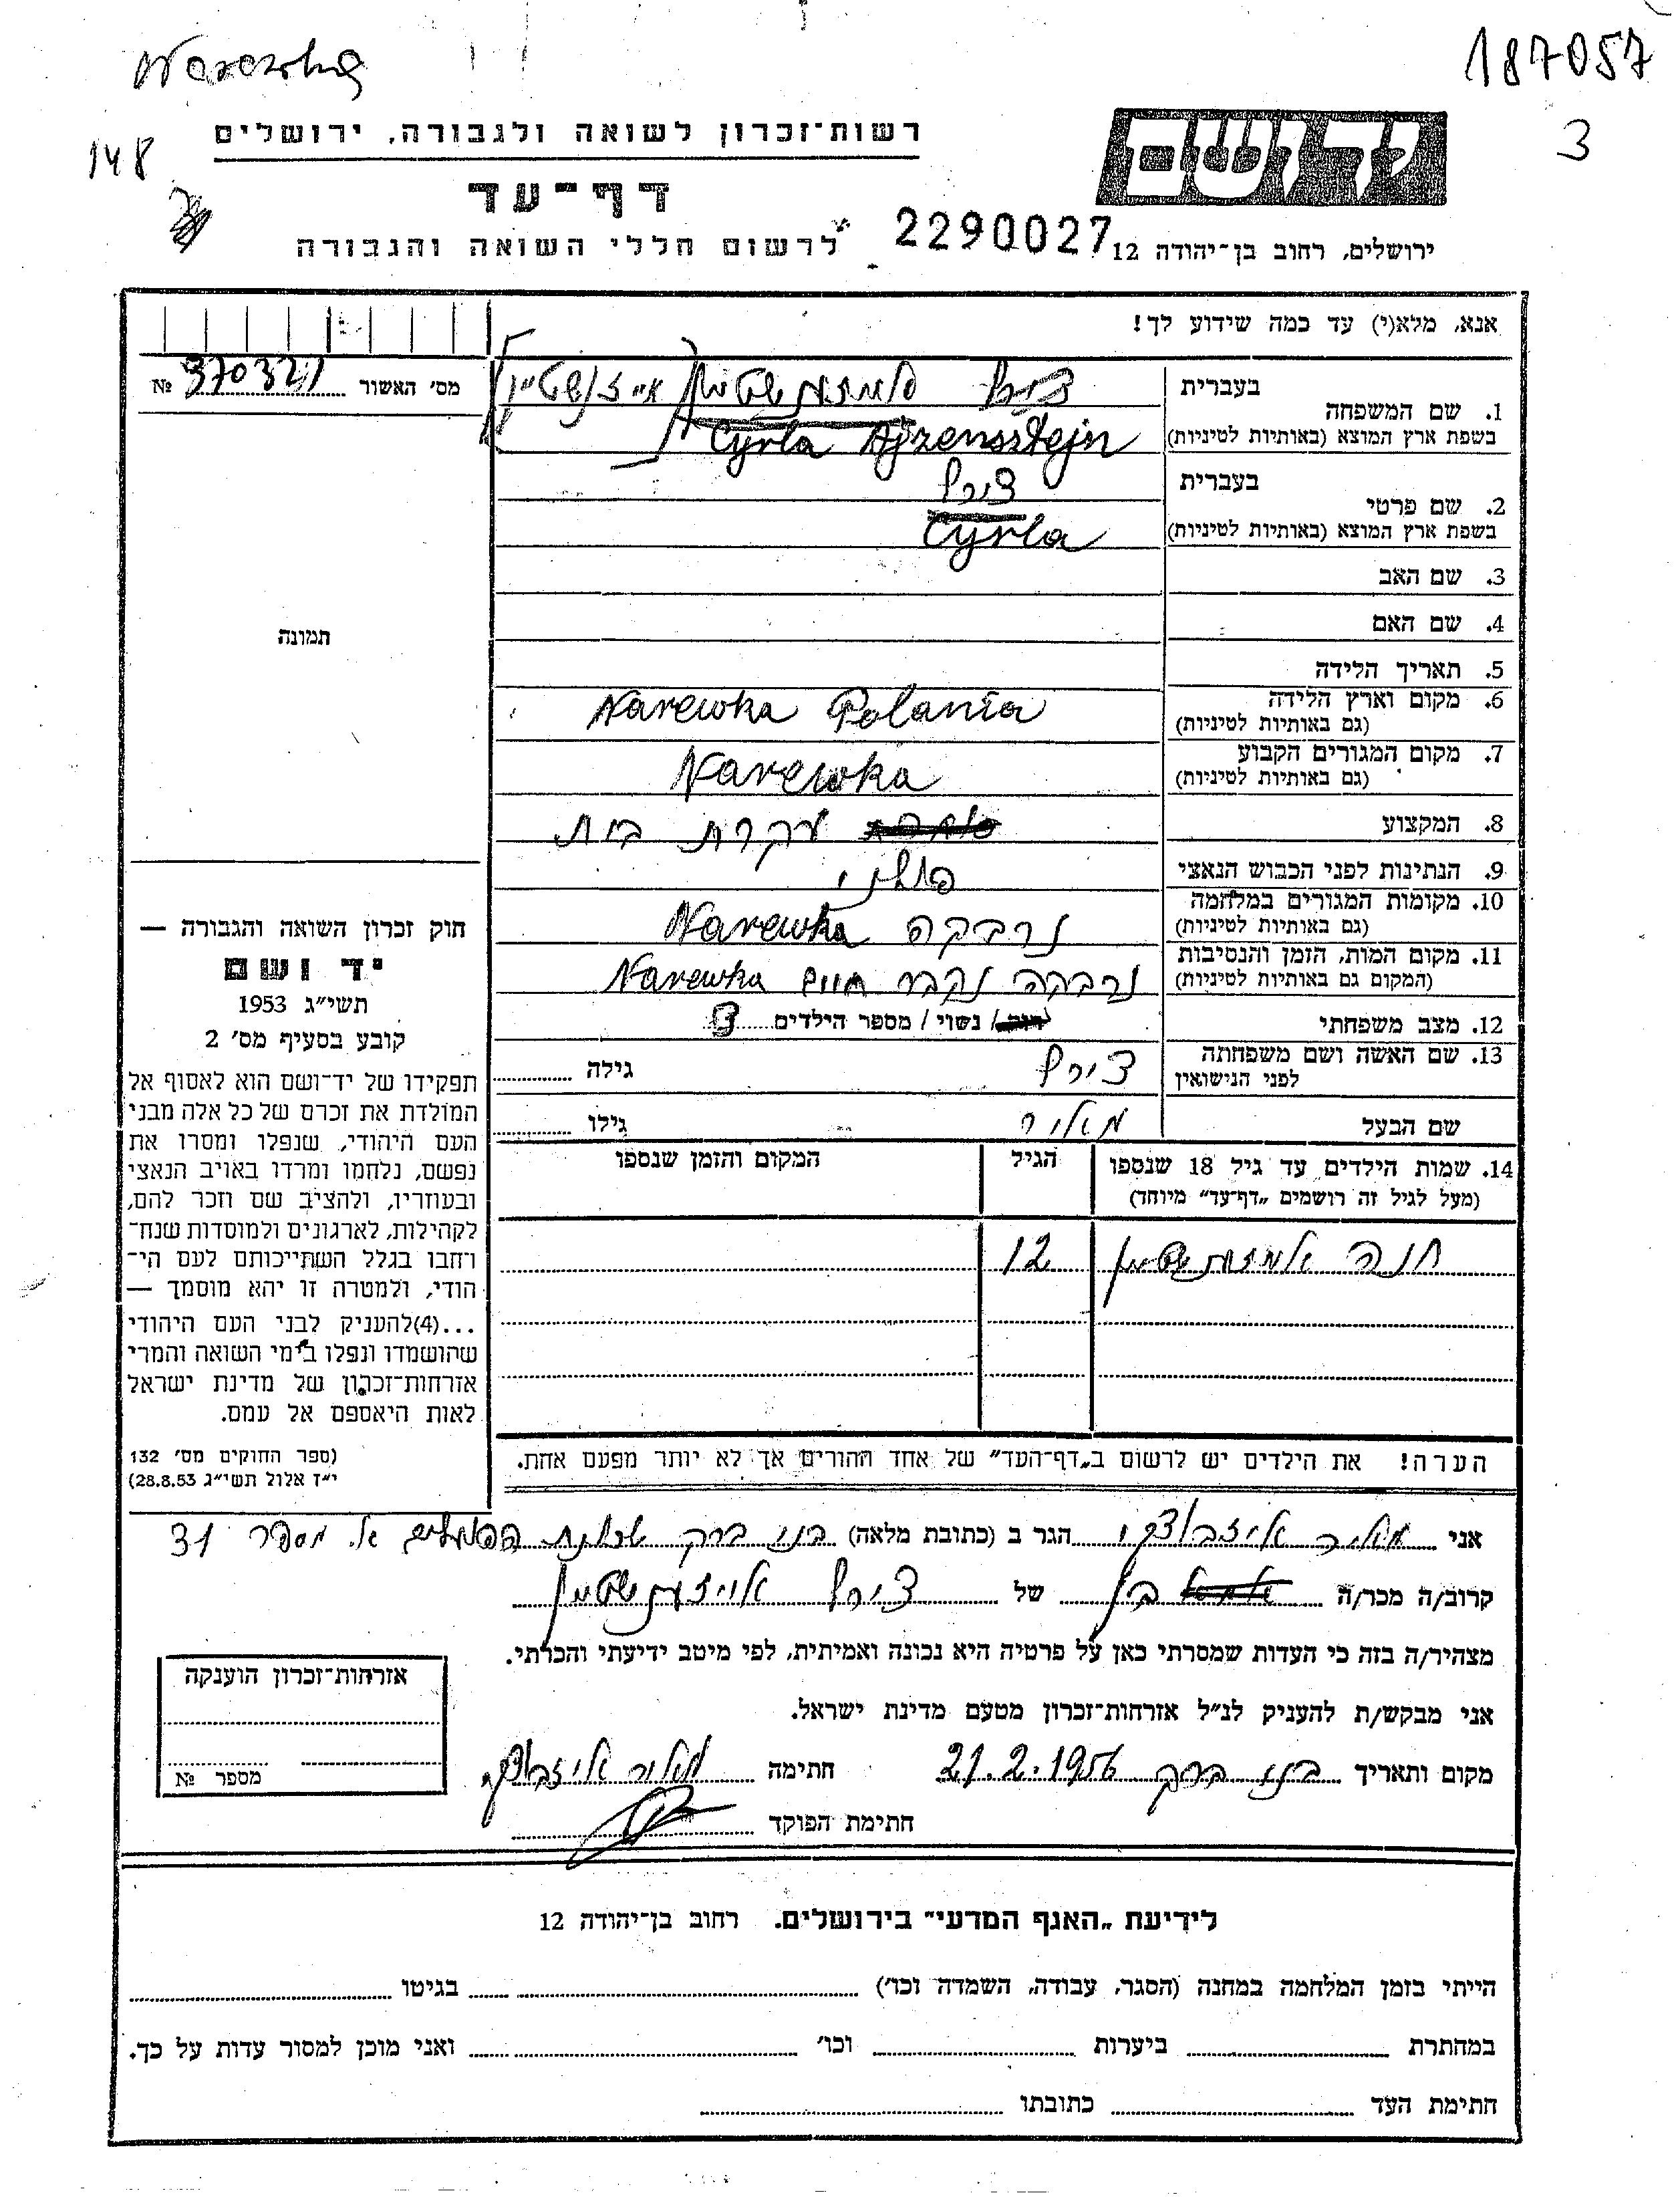 Narewka
187057
3
148
רשות־זכרון לשואה ולגבורה, ירושלים
יד ושם
דף־עד
לרשום חללי השואה והגבורה
2290027
ירושלים, רחוב בן־יהודה 12
אנא, מלא(י) עד כמה שידוע לך!
מס׳ האשור 370321 №
1. שם המשפחה
בעברית צירל אייזנשטיין
בשפת ארץ המוצא (באותיות לטיניות) Cyrla Ajzensztejn
2. שם פרטי
בעברית צירל
בשפת ארץ המוצא (באותיות לטיניות) Cyrla
3. שם האב
4. שם האם
תמונה
5. תאריך הלידה
6. מקום וארץ הלידה
(גם באותיות לטיניות) Narewka Polania
7. מקום המגורים הקבוע
(גם באותיות לטיניות) Narewka
8. המקצוע עקרת בית
9. הנתינות לפני הכבוש הנאצי פולני
10. מקומות המגורים במלחמה
(גם באותיות לטיניות) נרבקה Narewka
11. מקום המות, הזמן והנסיבות
(המקום גם באותיות לטיניות) נרבקה נקברו חיים Narewka
12. מצב משפחתי רווק / נשוי / מספר הילדים 3
13. שם האשה ושם משפחתה
לפני הנישואין צירל גילה
שם הבעל מאיר גילו
14. שמות הילדים עד גיל 18 שנספו
(מעל לגיל זה רושמים „דף־עד״ מיוחד)
הגיל
המקום והזמן שנספו
חנה 12
הערה! את הילדים יש לרשום ב„דף־העד״ של אחד ההורים אך לא יותר מפעם אחת.
חוק זכרון השואה והגבורה —
יד ושם
תשי״ג 1953
קובע בסעיף מס׳ 2
תפקידו של יד־ושם הוא לאסוף אל
המולדת את זכרם של כל אלה מבני
העם היהודי, שנפלו ומסרו את
נפשם, נלחמו ומרדו באויב הנאצי
ובעוזריו, ולהציב שם וזכר להם,
לקהילות, לארגונים ולמוסדות שנח־
רחבו בגלל השתייכותם לעם הי־
הודי, ולמטרה זו יהא מוסמך —
...(4)להעניק לבני העם היהודי
שהושמדו ונפלו בימי השואה והמרי
אזרחות־זכרון של מדינת ישראל
לאות היאספם אל עמם.
(ספר החוקים מס׳ 132
י״ז אלול תשי״ג 28.8.53)
אני מאיר הגר ב (כתובת מלאה) בני ברק שכונת הפועלים א׳ מספר 31
קרוב/ה מכר/ה בן של צירל אייזנשטיין
מצהיר/ה בזה כי העדות שמסרתי כאן על פרטיה היא נכונה ואמיתית, לפי מיטב ידיעתי והכרתי.
אני מבקש/ת להעניק לנ״ל אזרחות־זכרון מטעם מדינת ישראל.
מקום ותאריך בני ברק 21.2.1956 חתימה מאיר
חתימת הפוקד
אזרחות־זכרון הוענקה
מספר №
לידיעת „האגף המדעי״ בירושלים. רחוב בן־יהודה 12
הייתי בזמן המלחמה במחנה (הסגר, עבודה, השמדה וכו׳) בגיטו
במחתרת ביערות וכו׳ ואני מוכן למסור עדות על כך.
חתימת העד כתובתו